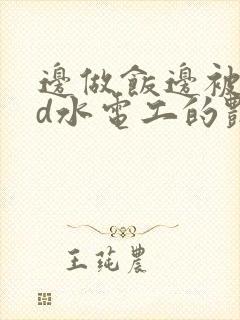 邊做飯邊被
d水電工的
王蒓農